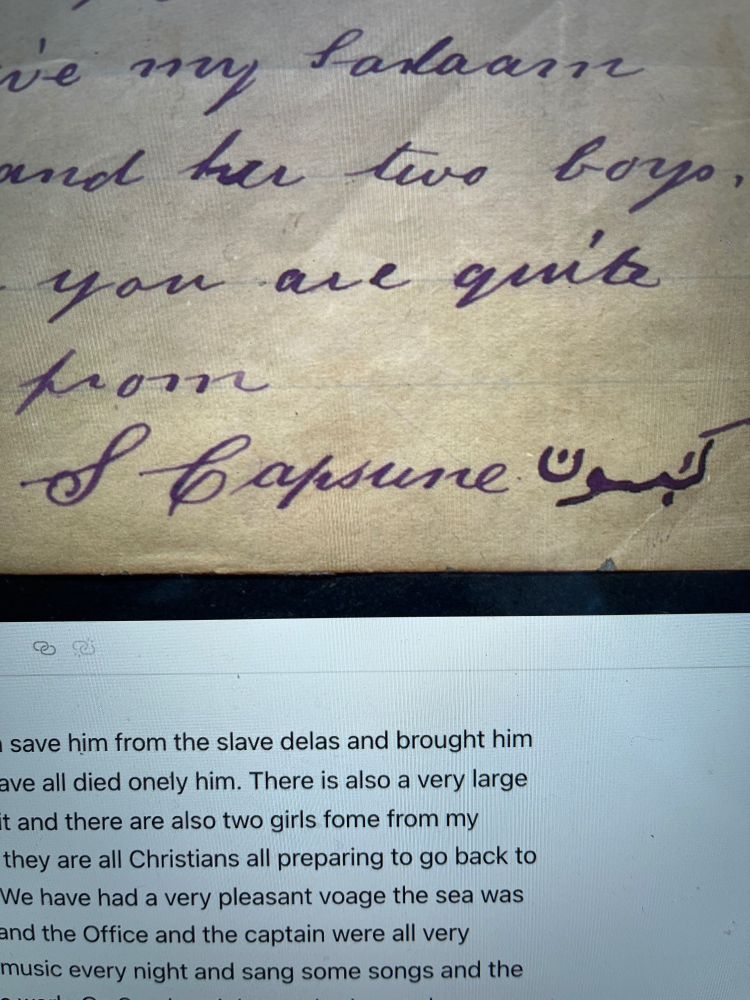 ve my Salaam
and her two boys.
you are quite
from
S Capsune كبسون
save him from the slave delas and brought him
ave all died onely him. There is also a very large
it and there are also two girls fome from my
they are all Christians all preparing to go back to
We have had a very pleasant voage the sea was
and the Office and the captain were all very
music every night and sang some songs and the